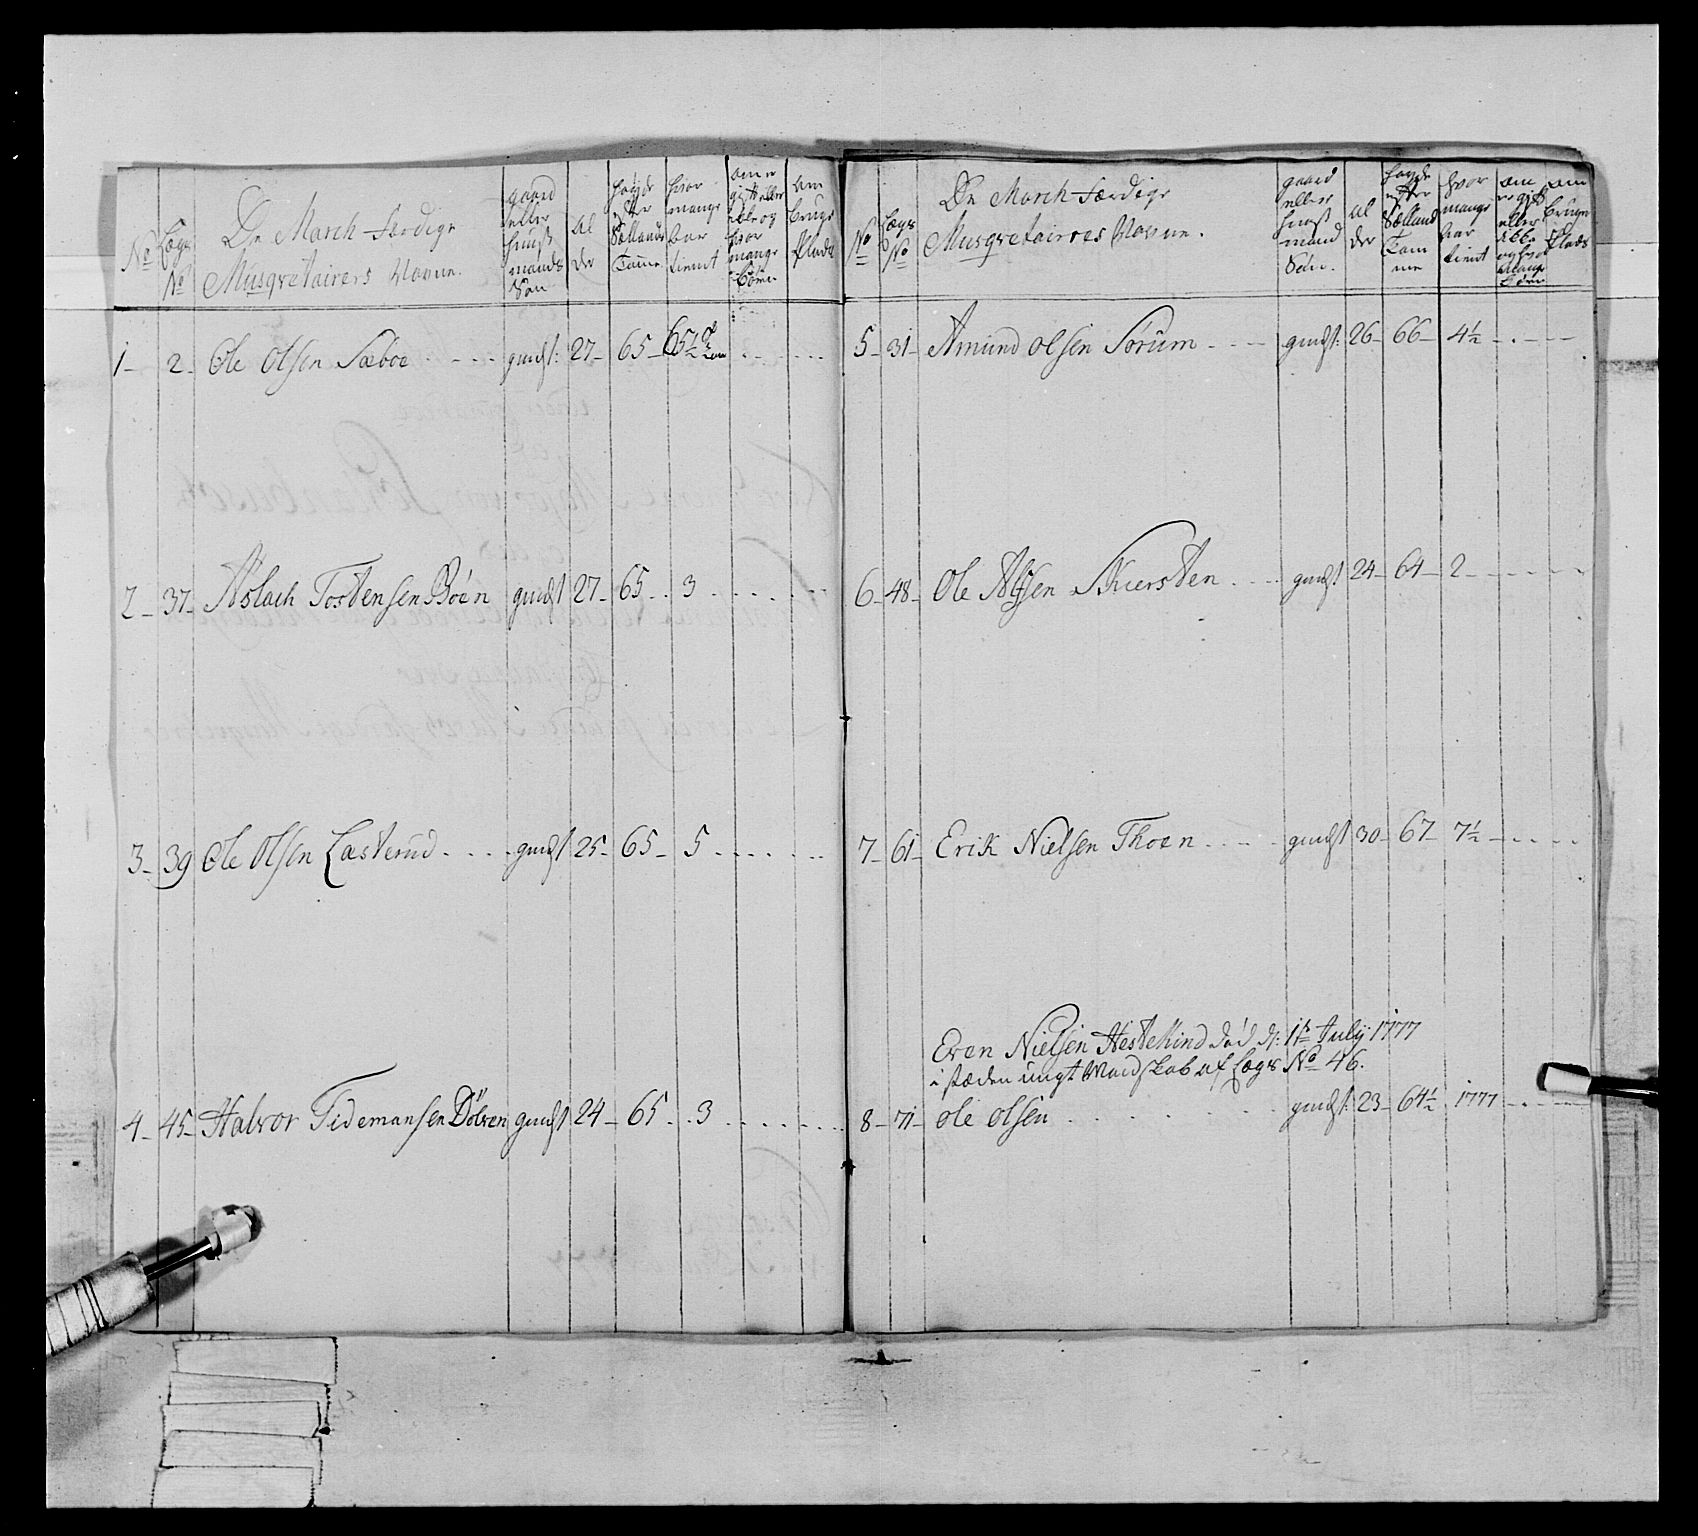 No
Lægs No
De March Færdige
Musqvetairers Navne.
gaard eller huus mands Søn
Alder
høyde efter Siællands Tomme
hvor mange har tient
om er gift eller ikke og hvor mange Børn
om brugr Plads
1 – 2 – Ole Olsen Sæboe . - - - gmdst: 27 – 65 –
2 – 37 – Aslach Tostensen Bøen gmdst 27 – 65 . . 3 . . . . . .
3 – 39 Ole Olsen Læsterud . . . . gmdst 25 – 65 – 5 . . . . . .
4 – 45 – Halvor Tidemansen Dølven gmdst 24 – 65 . . 3 . . . . . .
No
Lægs No
De March Færdige
Musqvetairers Navne.
gaard eller huus mand Søn.
Alder
høyde efter Siælland Tomme
hvor mange har tient
om er gift eller ikke og hvor mange Børn
om bruger Plads
5 – 31 – Amund Olsen Sørum - - - - gmdst: 26 – 66 – 4½ - . - -
6 – 48 – Ole Skiersten . . . . gmdst 24 – 64 – 2 - - - - -
7 – 61 – Erik Nielsen Thoen . . . . gmdst 30 – 67 – 7½ - . . . .
Even Nielsen Hestekind død d: 1te July 1777
i stæden ungt Mandskab af Lægs No 46.
8 – 71 – Ole Olsen . . . . . gmdst: 23 – 64½ 1777 - . - -